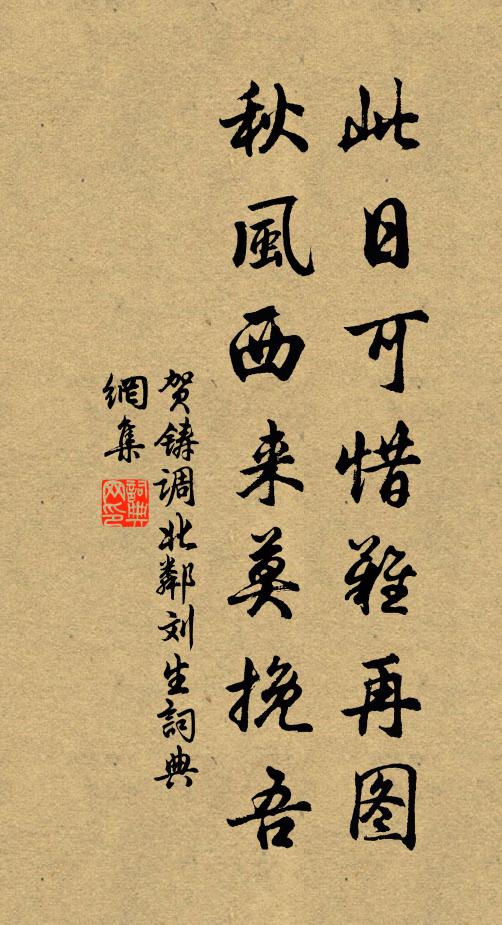 此日可惜难再图
秋風西来莫挽吾
贺铸调北鄰刘生詞典
網集
詞典
网印